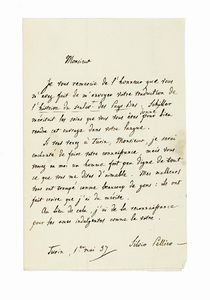 Monsieur
Je vous remercie de l'honneur que vous
m'avez fait de m'envoyer votre traduction de
l'histoire du des Pays Bas. Schyller
méritait les soins que vous vous êtes donné bien
rendre cet ouvrage dans votre langue.
Si vous venez à Turin, Monsieur, je serai
enchanté de faire votre connaissance mais vous
verrez en moi un homme fort peu digne de tout
ce que vous me dites d'aimable. Mes malheurs
vous ont trompé comme beaucoup de gens: ils ont
fait croire que j'ai du mérite.
Au lieu de cela, j'ai de la reconnaissance
pour les âmes indulgentes comme la vôtre.
Turin, 1er mai 37
Silvio Pellico